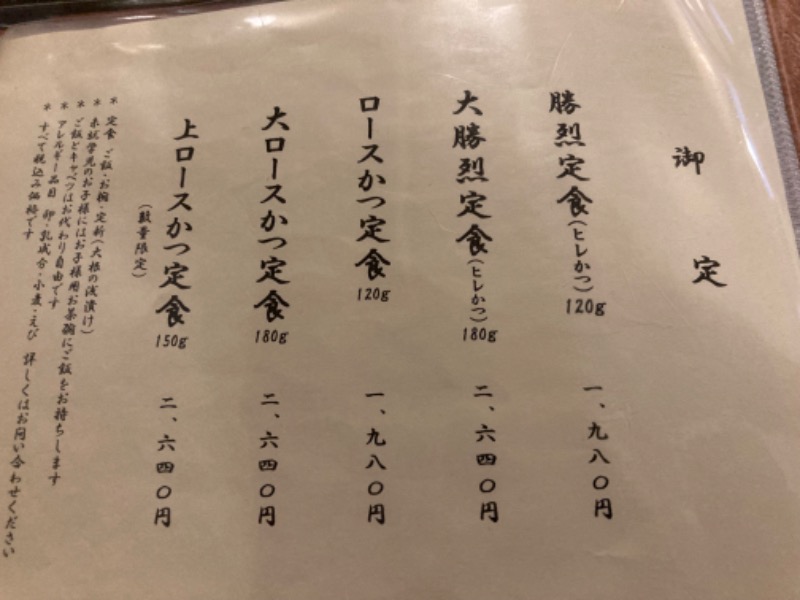 御定
勝烈定食(ヒレかつ)120g 一、九八〇円
大勝烈定食(ヒレかつ)180g 二、六四〇円
ロースかつ定食120g 一、九八〇円
大ロースかつ定食180g 二、六四〇円
上ロースかつ定食150g 二、六四〇円
(数量限定)
* 定食 ご飯・お椀・定新(大根の浅漬け)
* 未就学児のお子様にはお子様用お茶碗にご飯をお持ちします
* ご飯とキャベツはお代わり自由です
* アレルギー品目 卵・乳成分・小麦・えび 詳しくはお問い合わせください
* すべて税込み価格です